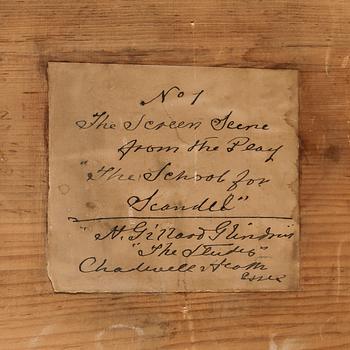 No 1
The Screen Scene
from the Play
"The School for
Scandel"
"H. Gillard Glindoni
"The Studio"
Chadwell Heath
Essex